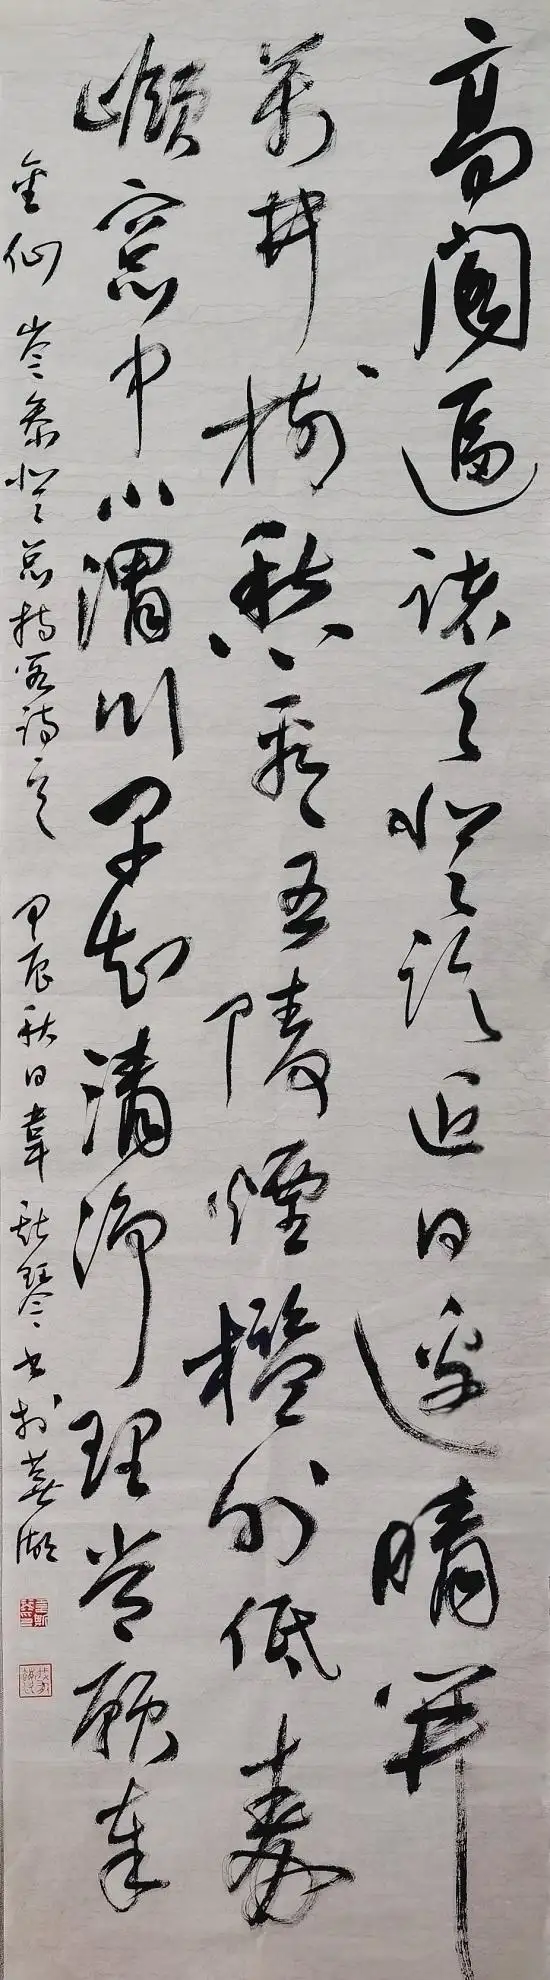 高閣逼諸天登臨近日邊晴開
萬井樹愁看五陵煙檻外低秦
嶺窓中小渭川早知清淨理常願奉
金仙 岑參登總持閣詩 甲辰秋日韋斯琴書於蕪湖